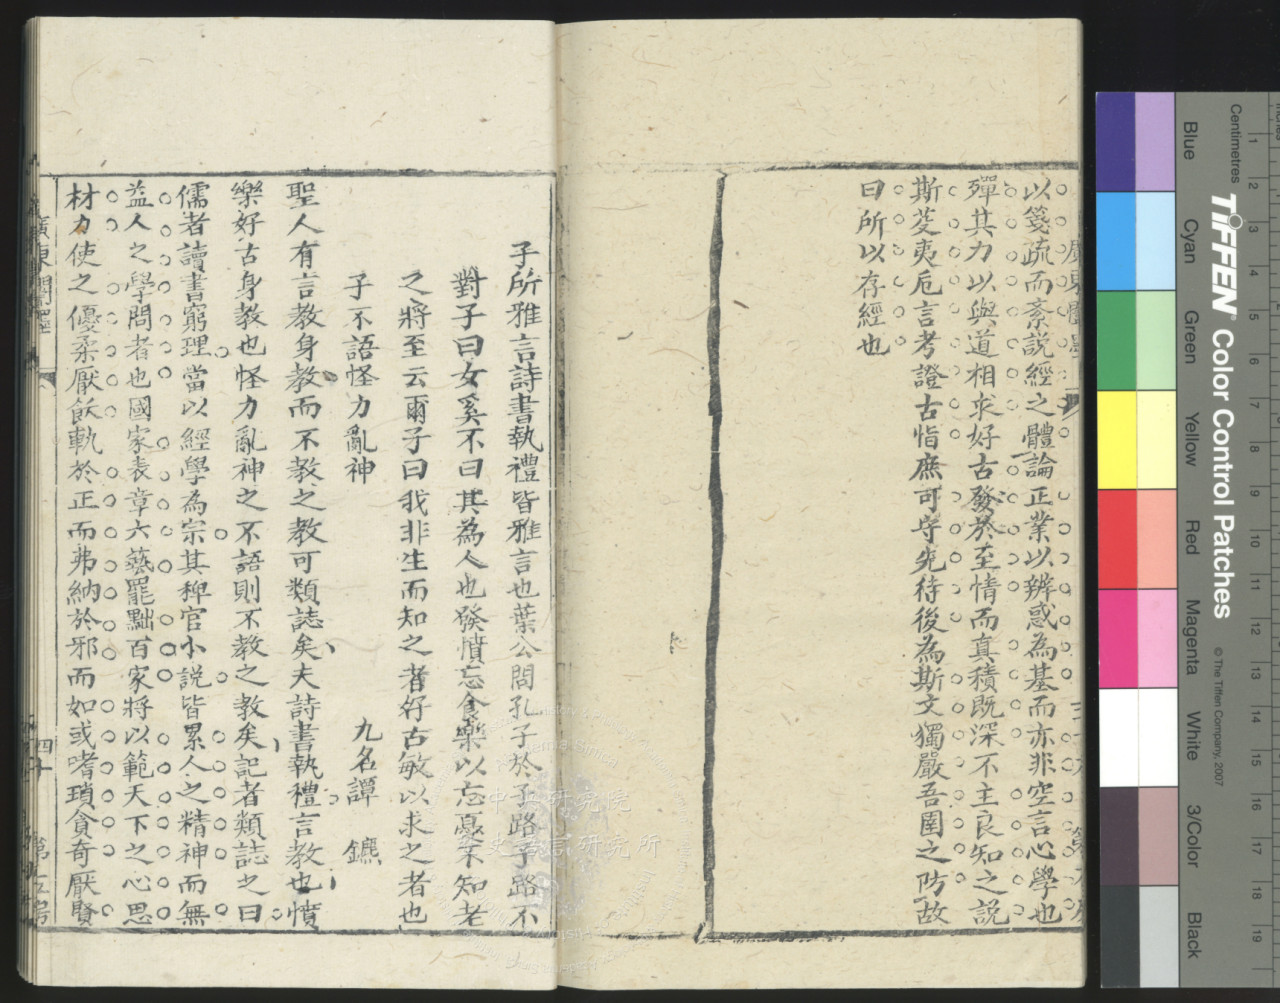 以箋疏而紊說經之體論正業以辨惑為基而亦非空言心學也
殫其力以與道相求好古發於至情而真積既深不主良知之說
斯芟夷卮言考證古恉庶可守先待後為斯文獨嚴吾圉之防故
曰所以存經也
子所雅言詩書執禮皆雅言也葉公問孔子於子路子路不
對子曰女奚不曰其為人也發憤忘食樂以忘憂不知老
之將至云爾子曰我非生而知之者好古敏以求之者也
子不語怪力亂神
九名譚鑣
聖人有言教身教而不教之教可類誌矣夫詩書執禮言教也憤
樂好古身教也怪力亂神之不語則不教之教矣記者類誌之曰
儒者讀書窮理當以經學為宗其稗官小說皆累人之精神而無
益人之學問者也國家表章六藝罷黜百家將以範天下之心思
材力使之優柔厭飫軌於正而弗納於邪而如或嗜瑣貪奇厭賢
廣東闈墨
四十
第五房
中央研究院
歷史語言研究所
Centimetres
TIFFEN® Color Control Patches
© The Tiffen Company, 2007
Blue
Cyan
Green
Yellow
Red
Magenta
White
3/Color
Black
1
2
3
4
5
6
7
8
9
10
11
12
13
14
15
16
17
18
19